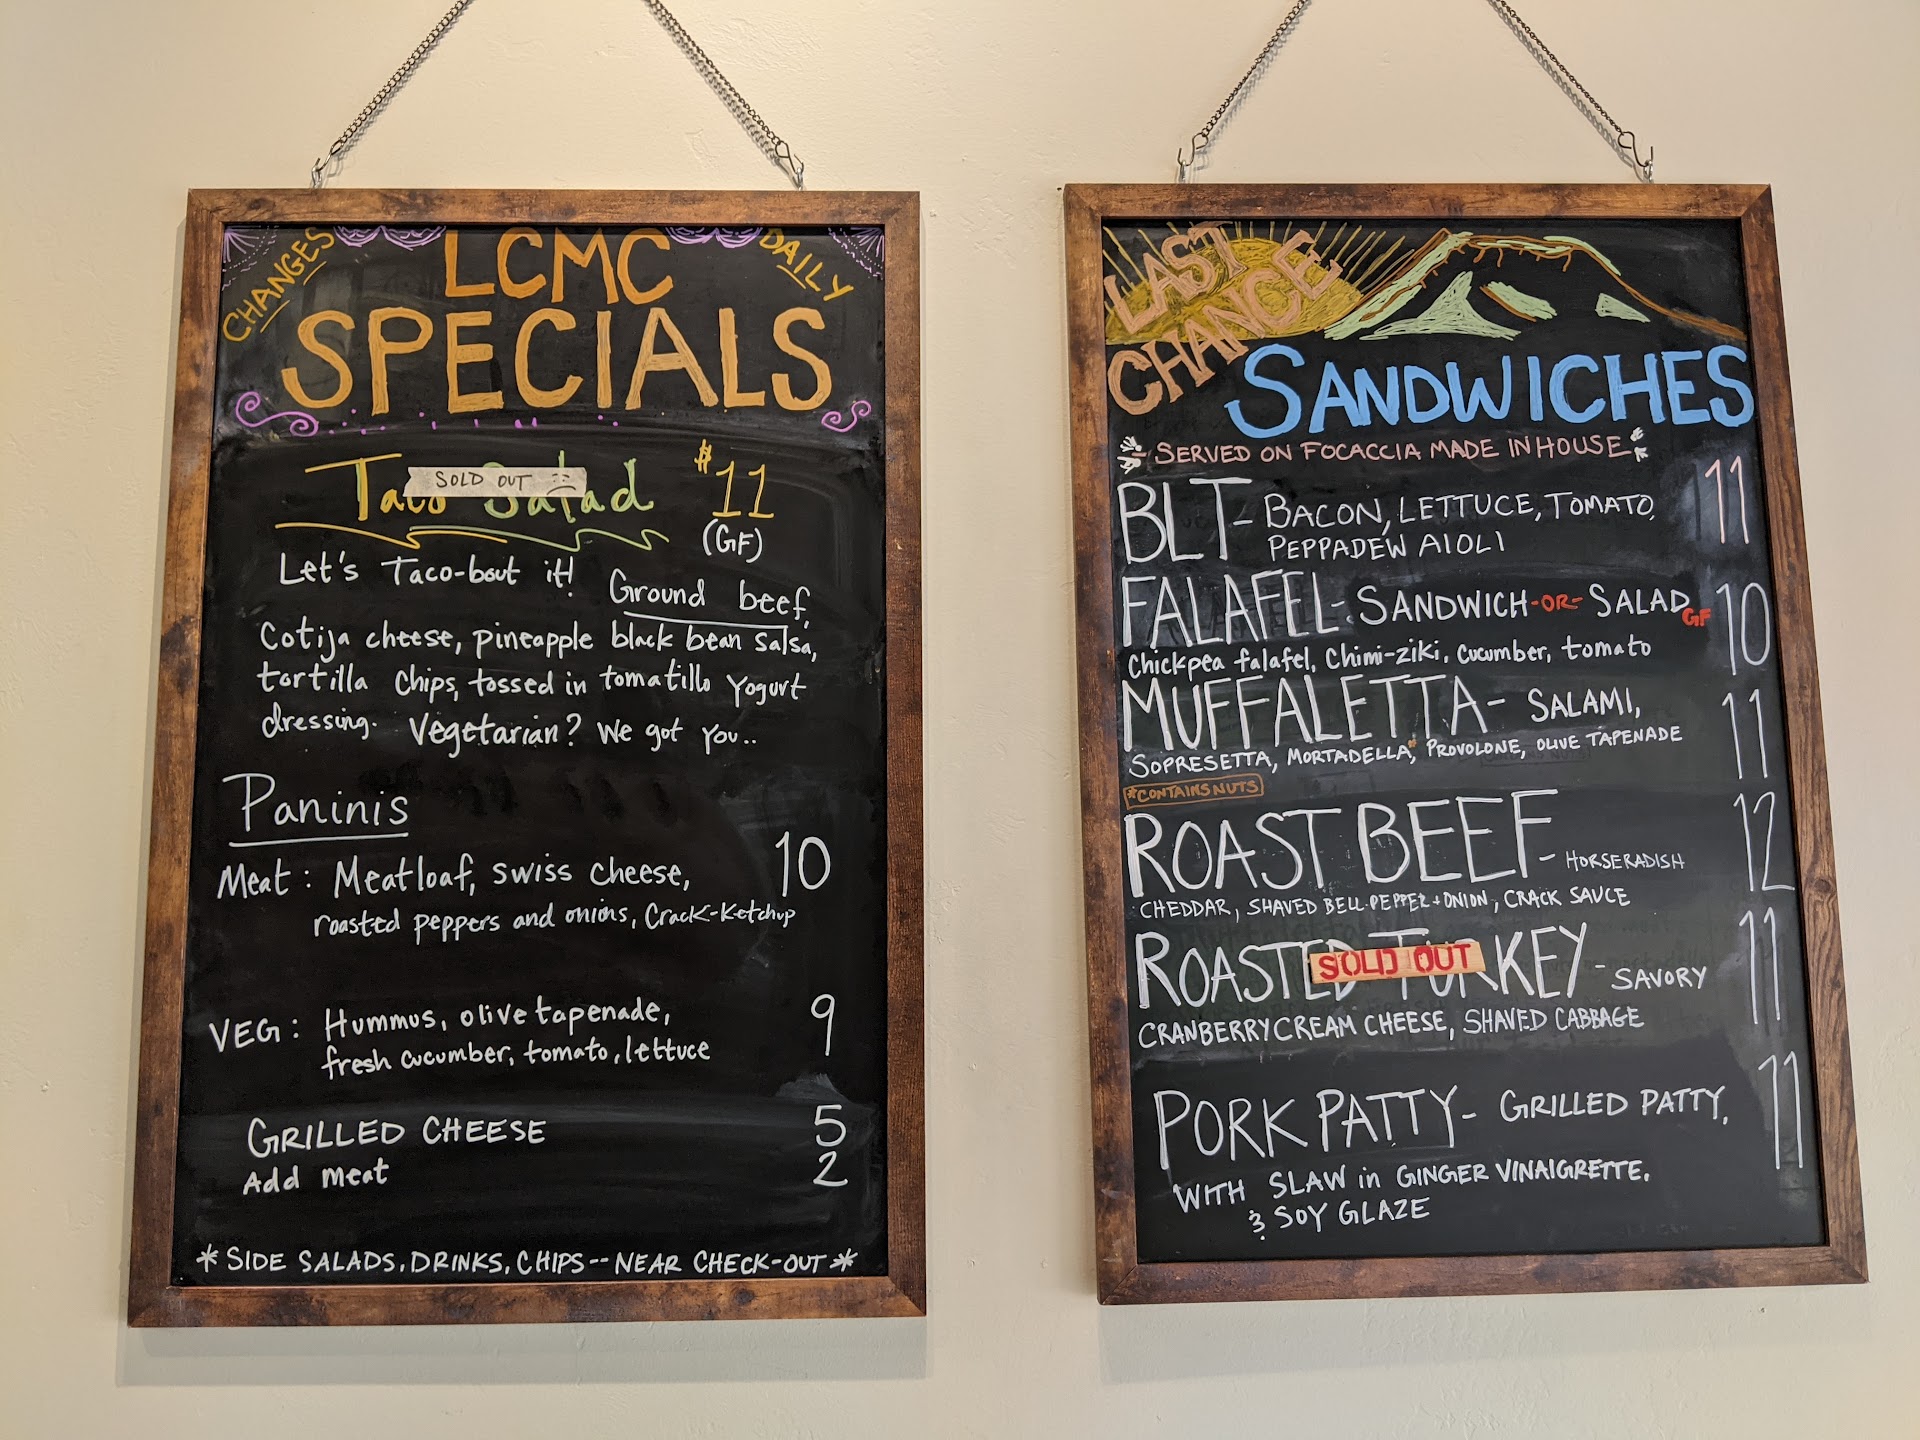 CHANGES
LCMC
DAILY
SPECIALS
Taco Salad $11
SOLD OUT
(GF)
Let's Taco-bout it! Ground beef,
Cotija cheese, pineapple black bean salsa,
tortilla chips, tossed in tomatillo yogurt
dressing. Vegetarian? We got you..
Paninis
Meat: Meatloaf, swiss cheese, 10
roasted peppers and onions, Crack-Ketchup
VEG: Hummus, olive tapenade, 9
fresh cucumber, tomato, lettuce
GRILLED CHEESE 5
Add meat 2
*SIDE SALADS, DRINKS, CHIPS--NEAR CHECK-OUT*
LAST
CHANCE
SANDWICHES
- SERVED ON FOCACCIA MADE IN HOUSE
BLT- BACON, LETTUCE, TOMATO, 11
PEPPADEW AIOLI
FALAFEL- SANDWICH -OR- SALAD GF 10
Chickpea falafel, Chimi-ziki, cucumber, tomato
MUFFALETTA- SALAMI, 11
SOPRESETTA, MORTADELLA*, PROVOLONE, OLIVE TAPENADE
*CONTAINS NUTS
ROAST BEEF- HORSERADISH 12
CHEDDAR, SHAVED BELL PEPPER + ONION, CRACK SAUCE
ROASTED TURKEY- SAVORY 11
SOLD OUT
CRANBERRY CREAM CHEESE, SHAVED CABBAGE
PORK PATTY- GRILLED PATTY, 11
WITH SLAW in GINGER VINAIGRETTE,
& SOY GLAZE